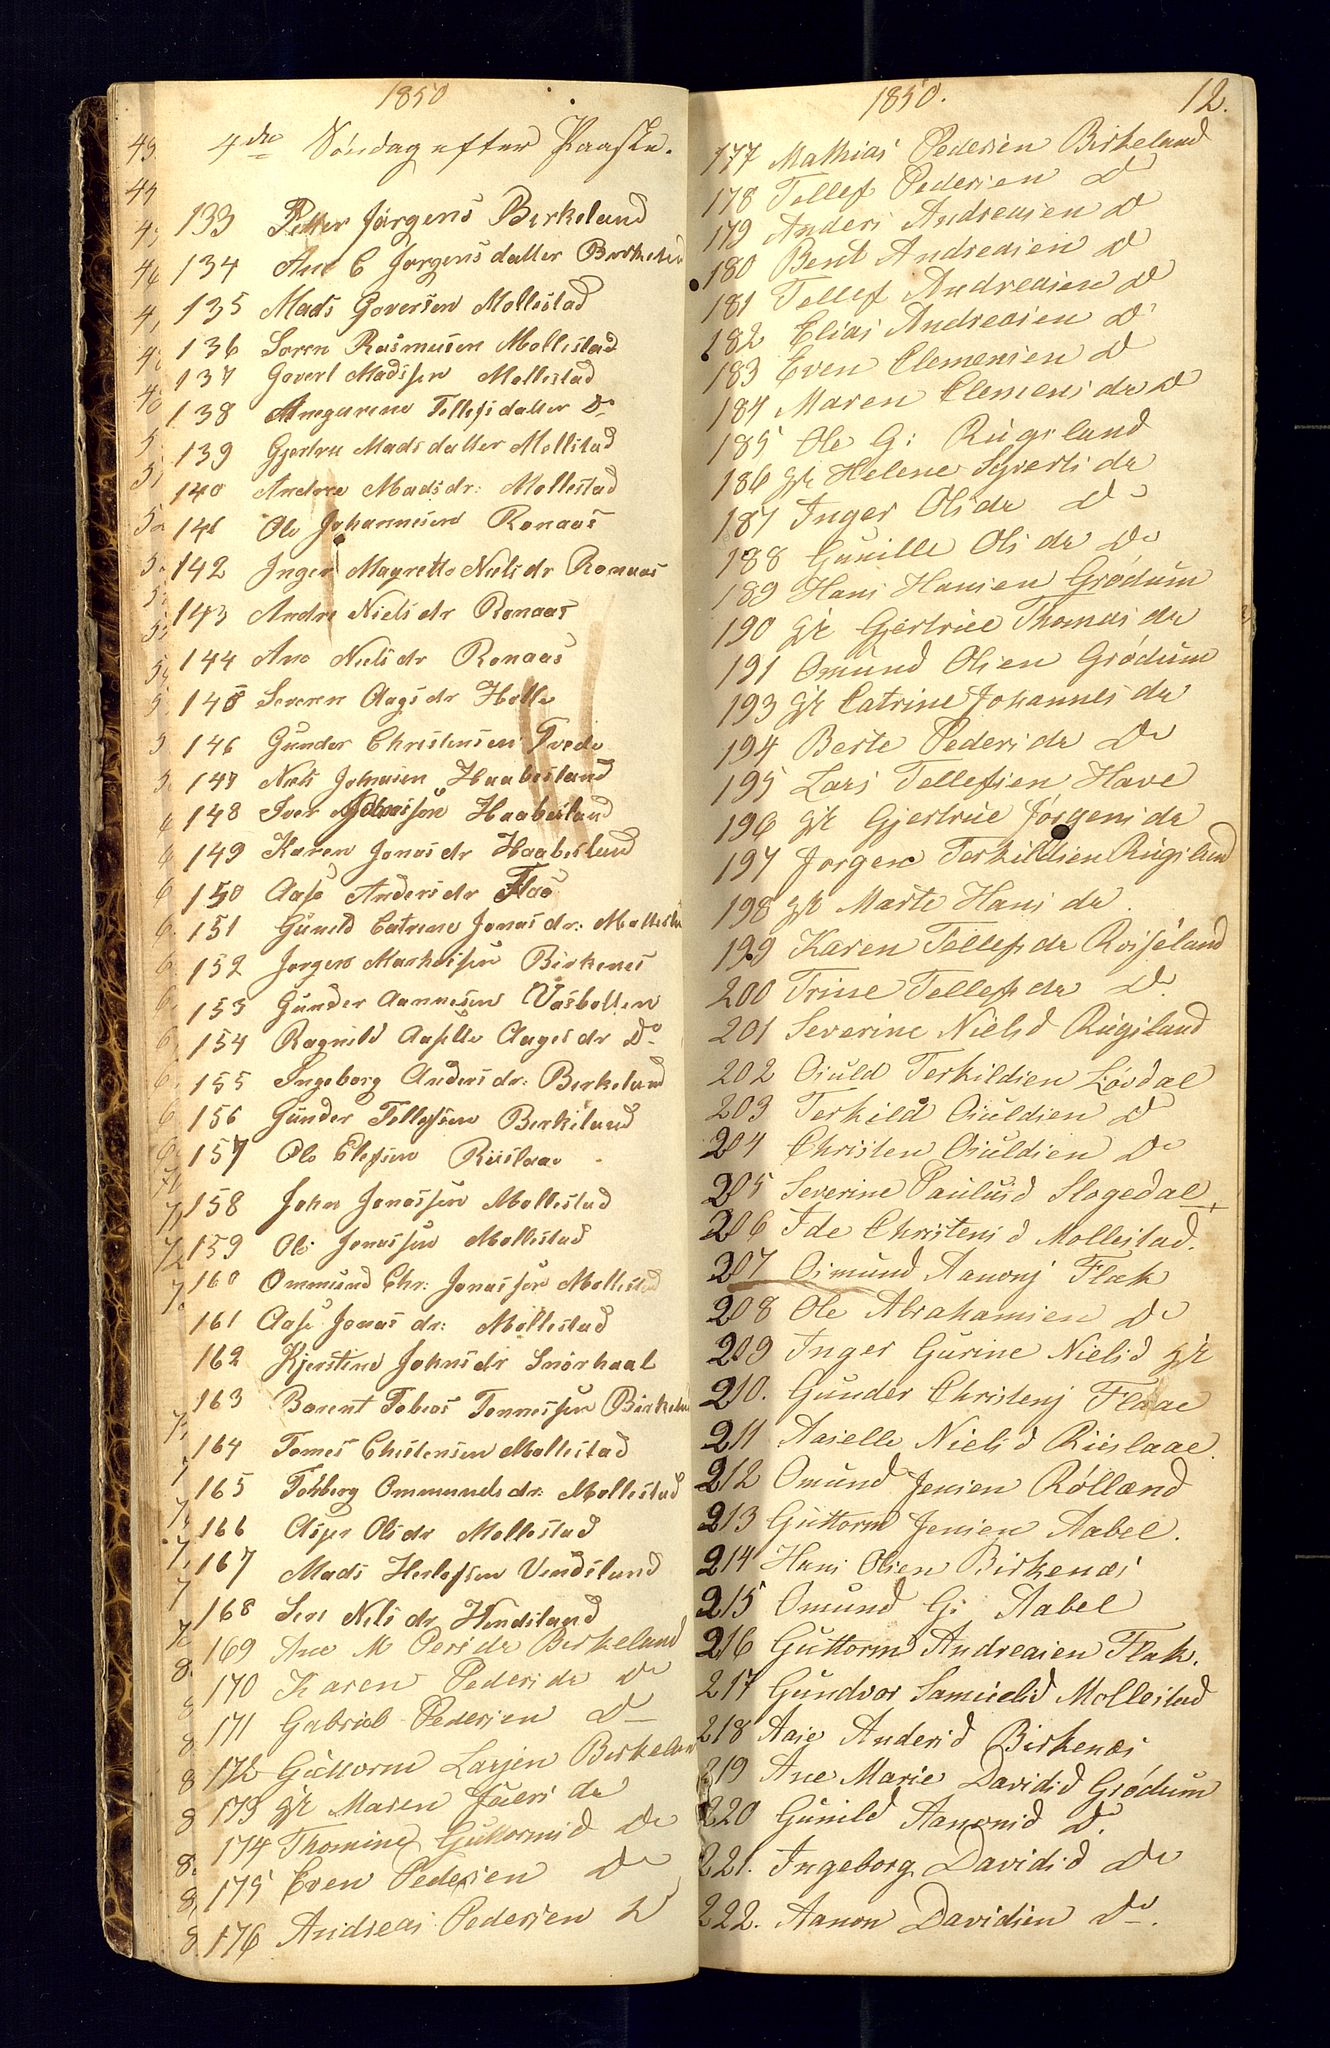 1850
4de Søndag efter Paaske.
133 Peder Jørgens Birkeland
134 Ane C Jørgensdatter Birkeland
135 Mads Goversen Mollestad
136 Soren Rasmusen Mollestad
137 Govert Madssen Mollestad
138 Anegurine Tellefsdatter Do
139 Gjertru Madsdatter Mollestad
140 Andrea Madsdr: Mollestad
141 Ole Johannesen Ronaas
142 Inger Magrette Nielsdr Ronaas
143 Andre Nielsdr Ronaas
144 Ane Nielsdr Ronaas
145 Severen Aagsdr Holle
146 Gunder Christensen Tvede
147 Niels Johnsen Haabesland
148 Iver Haabesland
149 Karen Jonasdr Haabesland
150 Aase Andersdr Flaa
151 Gunild Catrine Jonasdr: Mollestad
152 Jorgen Markussen Birkenes
153 Gunder Aannesen Vasbotten
154 Ragnild Aaselle Aagesdr Do
155 Ingeborg Andersdr: Birkeland
156 Gunder Tellefsen Birkeland
157 Ole Elefsen Riislaae
158 John Jonassen Mollestad
159 Ole Jonassen Mollestad
160 Ommund Chr: Jonassen Mollestad
161 Aase Jonasdr: Mollestad
162 Kjerstine Johnsdr Snorhaal
163 Barent Tobias Tonnessen Birkeland
164 Tomes Chistensen Mollestad
165 Tohberg Ommundsdr: Mollestad
166 Aase Olsdr Mollestad
167 Mads Herlefsen Vendsland
168 Sere Nilsdr Hendsland
169 Ane M Persdr Birkeland
170 Karen Pedersdr Do
171 Gabriel Pedersen Do
172 Guttorm Larsen Birkeland
173 gk Maren Juersdr
174 Thomine Guttormsd Do
175 Even Pedersen Do
176 Andreas Pedersen Do
1850. 12.
177 Mathias Pedersen Birkeland
178 Tellef Pedersen Do
179 Anders Andreasen Do
180 Bent Andreasen Do
181 Tellef Andreasen Do
182 Elias Andreasen Do
183 Even Clemensen Do
184 Maren Clemensdr Do
185 Ole G: Rugsland
186 gk Helene Syvertsdr
187 Inger Olsdr Do
188 Gunille Olsdr Do
189 Hans Hansen Grødum
190 gk Gjertrue Thomasdr
191 Omund Olsen Grødum
193 gk Catrine Johannesdr
194 Berte Pedersdr Do
195 Lars Tellefsen Have
196 gk Gjertrue Jørgensdr
197 Jorgen Terkildsen Rugsland
198 gk Marte Hansdr.
199 Karen Tellefsdr Roiseland
200 Trine Tellefsdr Do
201 Severine Nielsd Rugsland
202 Osuld Terkildsen Løvdal
203 Terkild Osuldsen Do
204 Christen Osuldsen Do
205 Severine Paulusd Slogedal
206 Ide Christensd Mollestad.
207 Osmund Aanonj Flak
208 Ole Abrahamsen Do
209 Inger Gurine Nielsd gk
210. Gunder Christenj Flaae
211 Aaselle Nielsd Riislaae
212 Omund Jensen Rølland
213 Guttorm Jensen Aabel.
214 Hans Olsen Birkenæs
215 Omund G: Aabel
216 Guttorm Andreasen Flak.
217 Gundvor Samuelsd Mollestad
218 Aase Andersd Birkenæs
219 Ane Marie Davidsd Grødum
220 Gunild Aanonsd Do.
221. Ingeborg Davidsd Do
222. Aanon Davidsen Do.